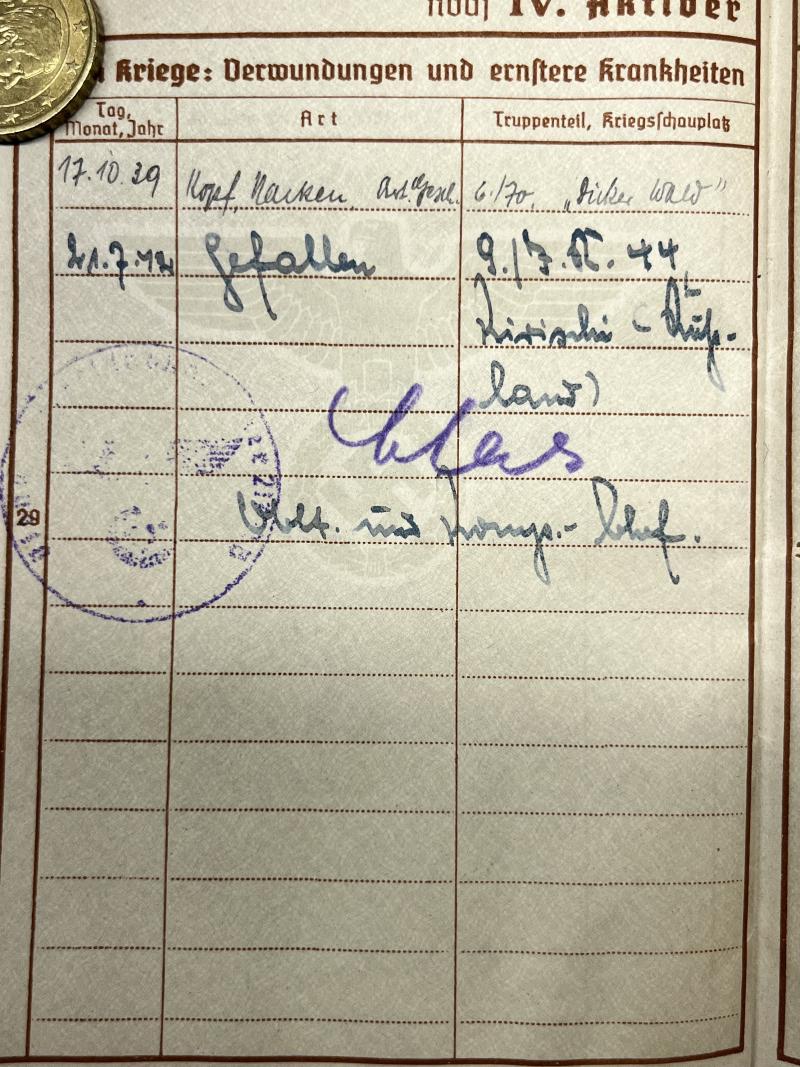 noch IV. Aktiver
Kriege: Verwundungen und ernstere Krankheiten
Tag, Monat, Jahr Art Truppenteil, Kriegsschauplatz
17.10.39 Kopf, Nacken, Art. Gesch. 6./70. „Dicker Wald"
21.7.42 Gefallen 9./J.R. 44,
Kirischi (Ruß-
land)
Oblt. und Komp.-Chef.
29